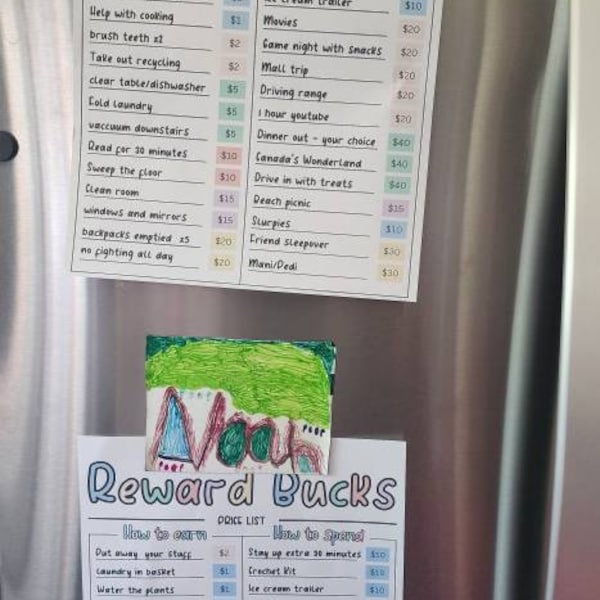 Help with cooking $1
brush teeth x2 $2
Take out recycling $2
clear table/dishwasher $5
Fold laundry $5
vaccuum downstairs $5
Read for 30 minutes $10
Sweep the floor $10
Clean room $15
windows and mirrors $15
backpacks emptied x5 $20
no fighting all day $20
Ice cream trailer $10
Movies $20
Game night with snacks $20
Mall trip $20
Driving range $20
1 hour youtube $20
Dinner out - your choice $40
Canada's Wonderland $40
Drive in with treats $40
Beach picnic $15
Slurpies $10
Friend sleepover $30
Mani/Pedi $30
Noah
poop
poop
Reward Bucks
PRICE LIST
How to earn
Put away your stuff $2
Laundry in basket $1
Water the plants $1
How to spend
Stay up extra 30 minutes $10
Crochet Kit $10
Ice cream trailer $10